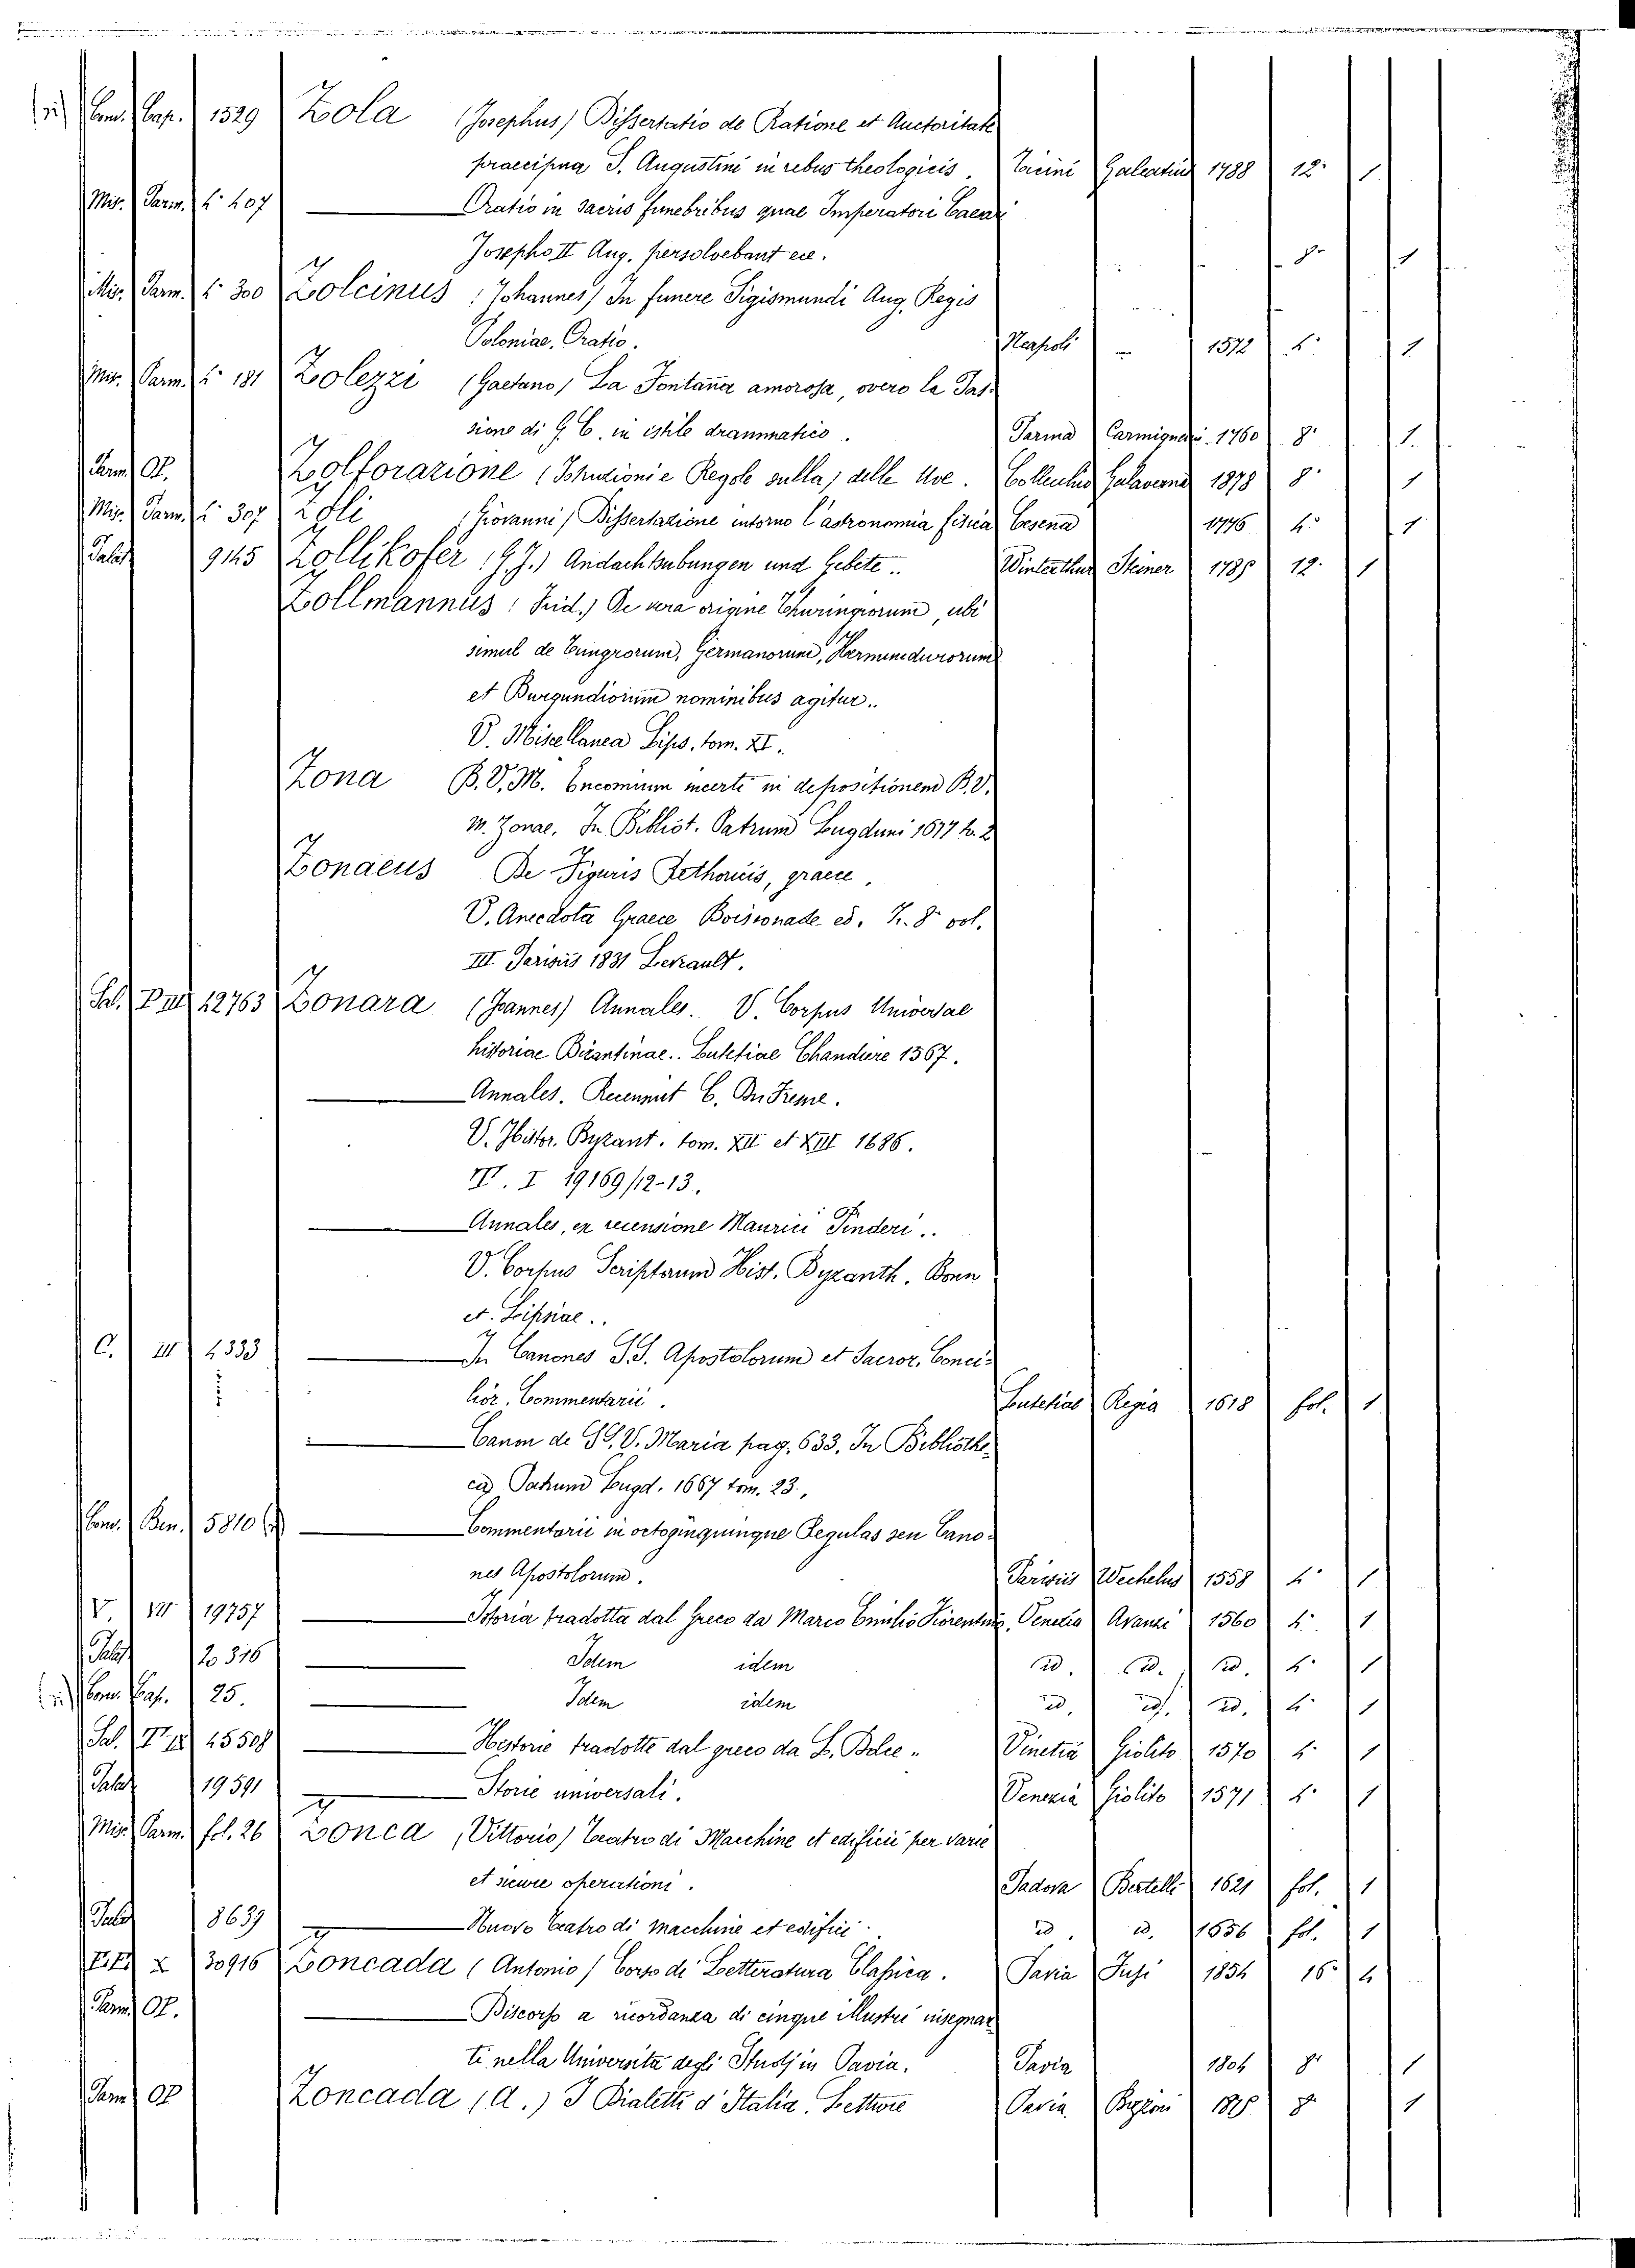 Com. Cap. 1529 Zola (Josephus) Dissertatio de Ratione et Auctoritate
praecipua S. Augustini in rebus theologicis. Ticini Galeatius 1788 12° 1
Mis. Parm. 4° 407 Oratio in sacris funebribus quae Imperatori
Josepho II Aug. persolvebant ec. 8° 1
Mis. Parm. 4° 300 Zolcinus (Johannes) In funere Sigismundi Aug. Regis
Poloniae, Oratio. Neapoli 1572 4° 1
Mis. Parm. 4° 181 Zolezzi (Gaetano) La Fontana amorosa, overo la Pas-
sione di G. C. in istile drammatico. Parma Carmignani 1760 8° 1
Parm. Op. Zolforazione (Istruzioni e Regole sulla) delle Uve. Collecchio Galaverna 1878 8° 1
Mis. Parm. 4° 307 Zoli (Giovanni) Dissertazione intorno l'astronomia fisica Cesena 1776 4° 1
Palat. 9145 Zollikofer (G. J.) Andachtsubungen und Gebete.. Winterthur Steiner 1785 12° 1
Zollmannus (Frid.) De vera origine Thuringiorum, ubi
simul de Tungrorum, Germanorum, Hermundurorum
et Burgundiorum nominibus agitur..
V. Miscellanea Lips. tom. XI.
Zona B. V. M. Encomium incerti in depositionem B. V.
M. Zonae. In Bibliot. Patrum Lugduni 1677 t. 2
Zonaeus De Figuris Rethoricis, graece.
V. Anecdota Graece Boissonade ed. T. 8° vol.
III Parisiis 1831
Sal. P III 12763 Zonara (Joannes) Annales. V. Corpus Universae
historiae Bizantinae.. Lutetiae Chandiere 1567.
Annales. Recensuit C. Du Fresne.
V. Histor. Byzant. tom. XII et XIII 1686.
VI. I 19169/12-13.
Annales, ex recensione Maurici Pinderi..
V. Corpus Scriptorum Hist. Byzanth. Bonn
et Lipsiae..
C. III 4333 In Canones S.S. Apostolorum et Sacror. Conci-
lior. Commentarii. Lutetiae Regia 1618 fol. 1
Canon de SS. V. Maria pag. 633. In Bibliothe-
ca Patrum Lugd. 1667 tom. 23.
Com. Ben. 5810 Commentarii in octoginquinque Regulas seu Cano-
nes Apostolorum. Parisiis Wechelus 1558 4° 1
V. VI 19757 Istoria tradotta dal Greco da Marco Emilio Fiorentino. Venetia Avanzi 1560 4° 1
Palat. 20316 Idem idem id. id. id. 4° 1
Com. Cap. 25. Idem idem id. id. id. 4° 1
Sal. 15508 Historie tradotte dal greco da L. Dolce.. Vinetia Giolito 1570 4° 1
Palat. 19591 Storie universali. Venezia Giolito 1571 4° 1
Mis. Parm. fol. 26 Zonca (Vittorio) Teatro di Macchine et edificii per varie
et sicure operationi. Padova Bertelli 1621 fol. 1
Palat. 8639 Nuovo Teatro di macchine et edificii. id. id. 1656 fol. 1
30916 Zoncada (Antonio) Corso di Letteratura Classica. Pavia Fusi 1854 16° 4
Parm. Op. Discorso a ricordanza di cinque illustri insegnan-
ti nella Università degli Studj in Pavia. Pavia 8° 1
Parm. Op. Zoncada (A.) I Dialetti d'Italia. Letture Pavia Bizzoni 1875 8° 1